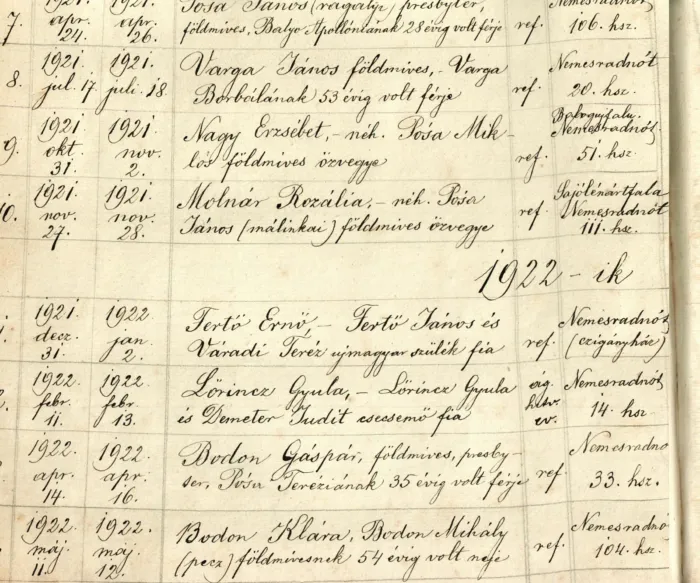 1921. 1921. Pósa János (ragályi) presbyter, Nemesradnót
7. apr. apr. földmives, Balyo Apollóniának 28 évig volt férje ref. 106. hsz.
24. 26.
1921 1921. Varga János földmives, - Varga Nemesradnót
8. jul. 17. juli. 18. Borbálának 53 évig volt férje ref. 20. hsz.
1921 1921. Nagy Erzsébet, - néh. Pósa Mik- Nemesradnót.
9. okt. nov. lós földmives özvegye ref. 51. hsz.
31. 2.
1921 1921. Molnár Rozália, - néh. Pósa Sajólénártfala
10. nov. nov. János (málinkai) földmives özvegye ref. Nemesradnót
27. 28. 111. hsz.
1922 - ik
1921. 1922 Fertő Ernő, - Fertő János és Nemesradnót
decz. jan. Váradi Teréz ujmagyar szülék fia ref. (czigányház)
31. 2.
1922. 1922. Lőrincz Gyula, - Lőrincz Gyula ág. Nemesradnót
febr. febr. és Demeter Judit csecsemő fia hitv. 14. hsz.
11. 13. ev.
1922. 1922. Bodon Gáspár, földmives, presby- Nemesradnó
apr. apr. ter, Pósa Teréziának 35 évig volt férje ref. 33. hsz.
14. 16.
1922. 1922. Bodon Klára, Bodon Mihály Nemesradnó
máj. maj. (pecz) földmivesnek 54 évig volt neje ref. 104. hsz.
11. 12.